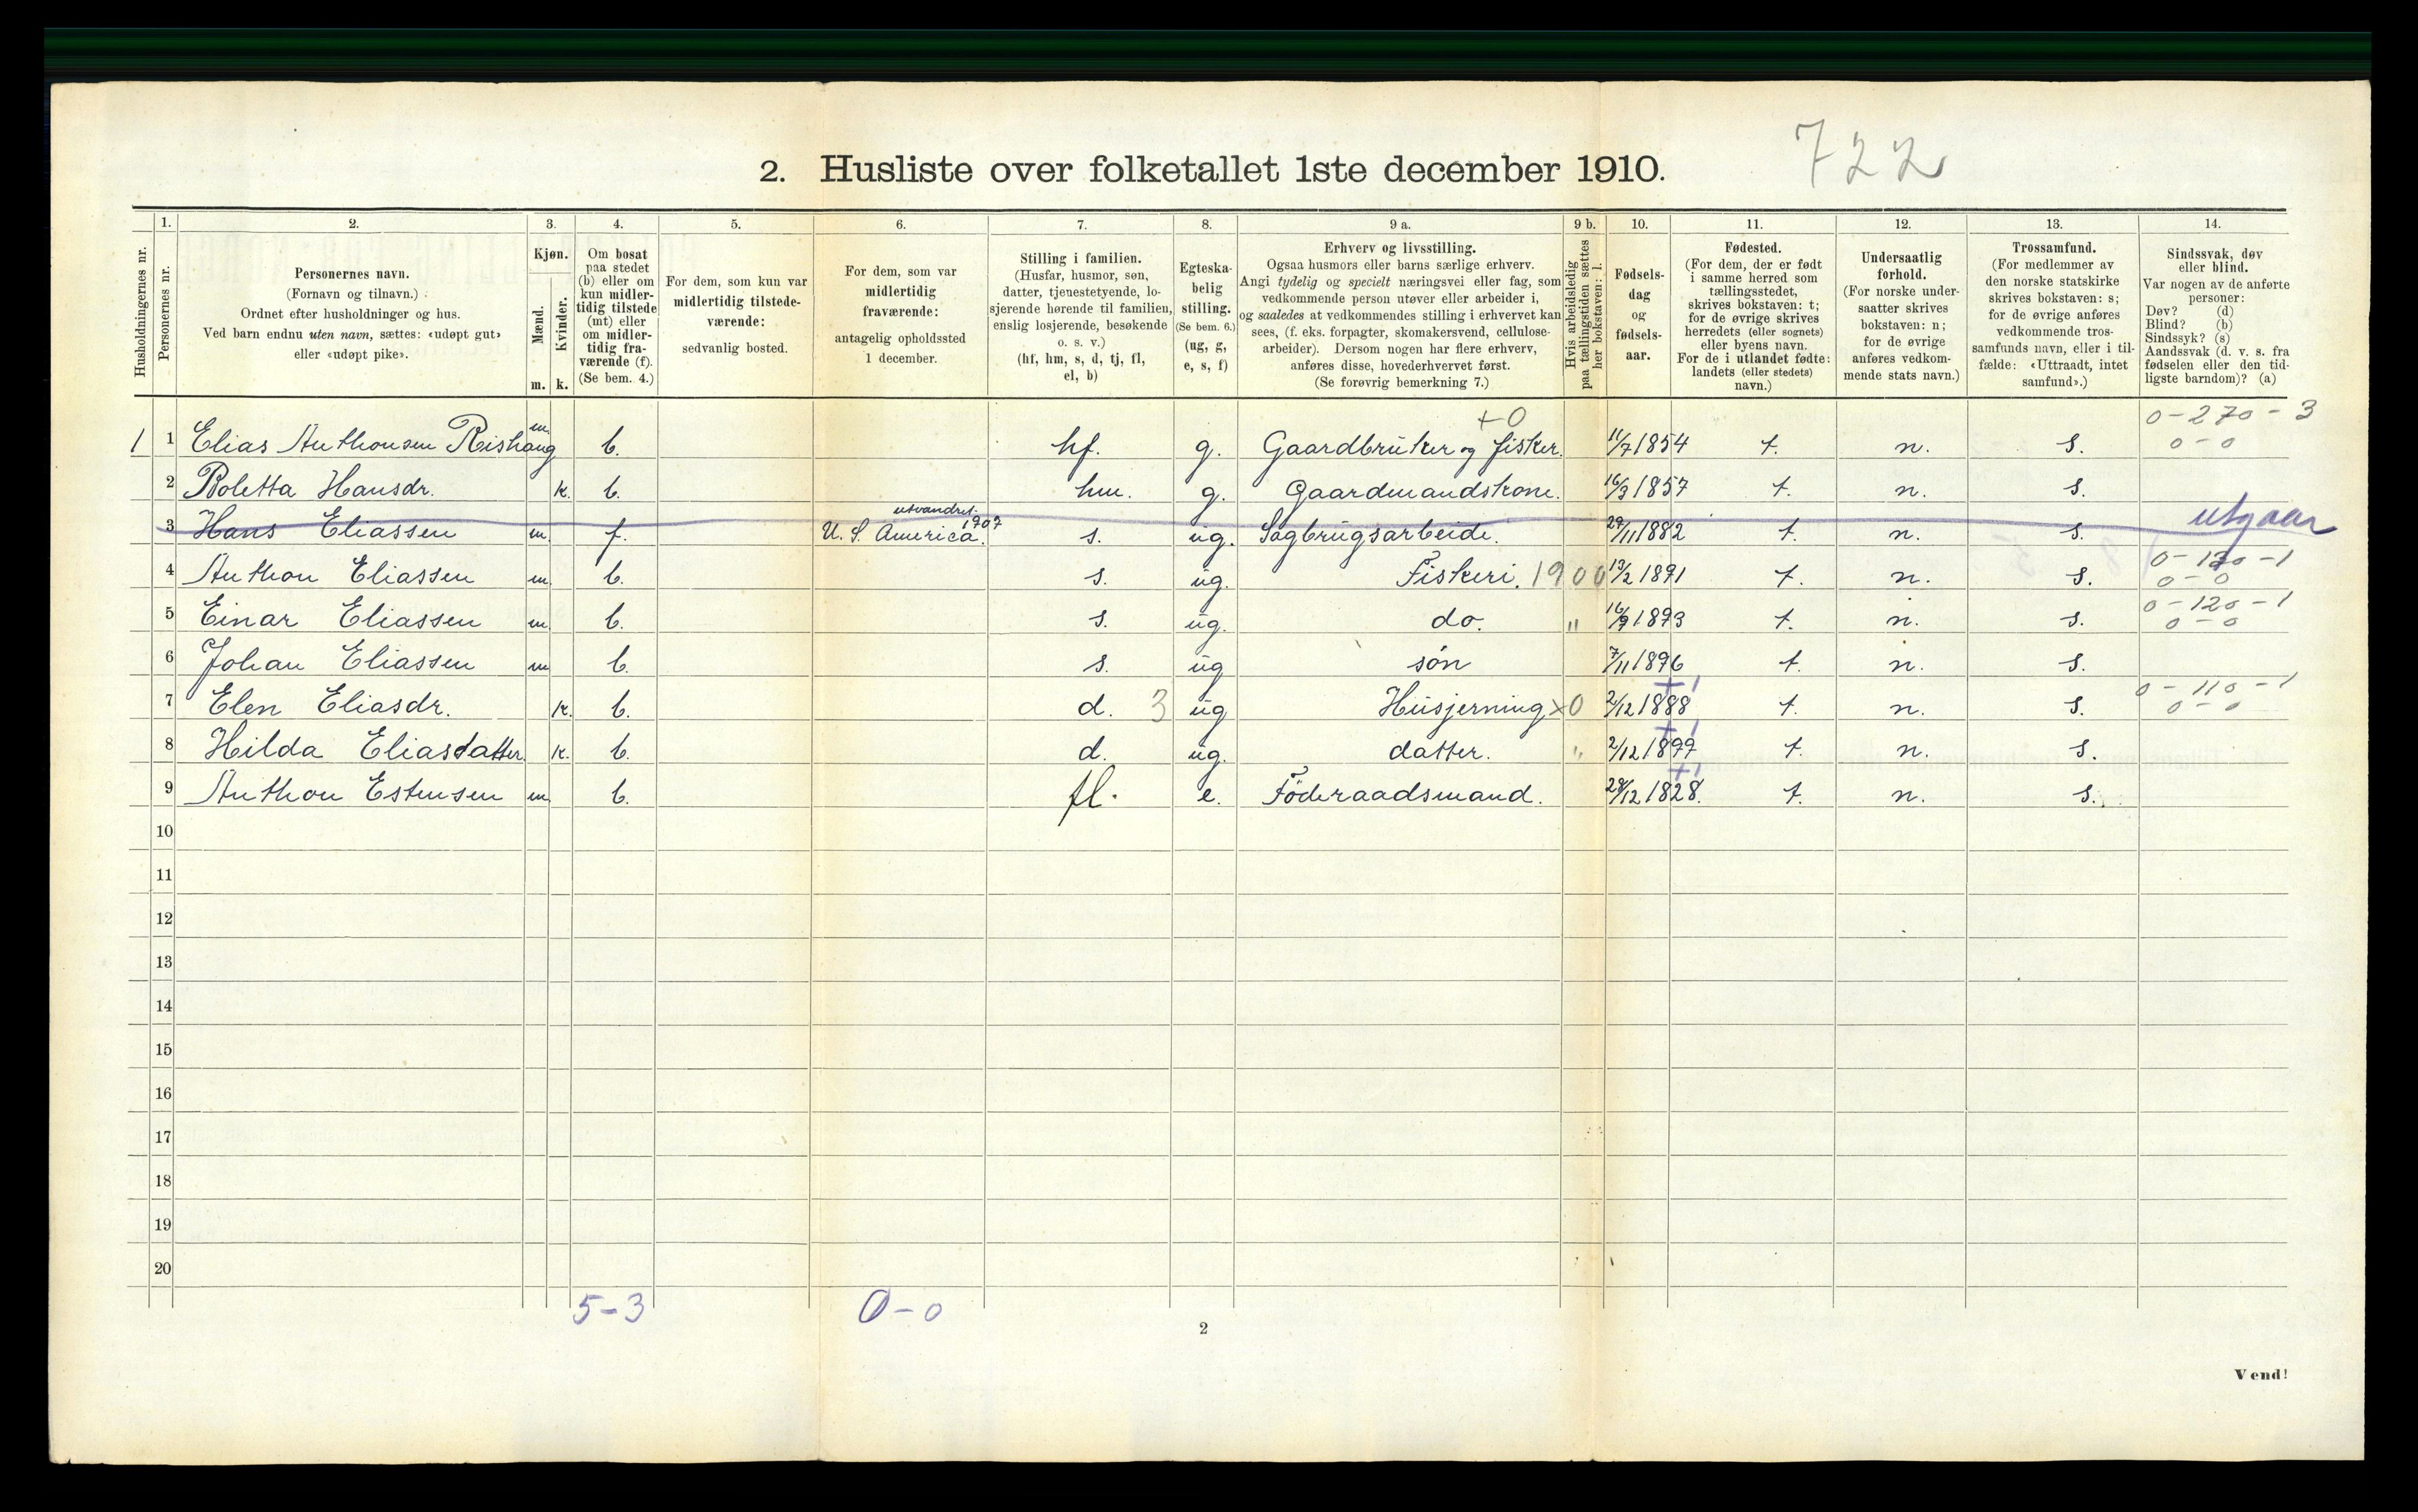 722
2. Husliste over folketallet 1ste december 1910.
Husholdningernes nr.
1.
Personernes nr.
2.
Personernes navn.
(Fornavn og tilnavn.)
Ordnet efter husholdninger og hus.
Ved barn endnu uten navn, sættes: «udøpt gut»
eller «udøpt pike».
3.
Kjøn.
Mænd.
Kvinder.
m. k.
4.
Om bosat
paa stedet
(b) eller om
kun midler-
tidig tilstede
(mt) eller
om midler-
tidig fra-
værende (f).
(Se bem. 4.)
5.
For dem, som kun var
midlertidig tilstede-
værende:
sedvanlig bosted.
6.
For dem, som var
midlertidig
fraværende:
antagelig opholdssted
1 december.
7.
Stilling i familien.
(Husfar, husmor, søn,
datter, tjenestetyende, lo-
sjerende hørende til familien,
enslig losjerende, besøkende
o. s. v.)
(hf, hm, s, d, tj, fl,
el, b)
8.
Egteska-
belig
stilling.
(Se bem. 6.)
(ug, g,
e, s, f)
9 a.
Erhverv og livsstilling.
Ogsaa husmors eller barns særlige erhverv.
Angi tydelig og specielt næringsvei eller fag, som
vedkommende person utøver eller arbeider i,
og saaledes at vedkommendes stilling i erhvervet kan
sees, (f. eks. forpagter, skomakersvend, cellulose-
arbeider). Dersom nogen har flere erhverv,
anføres disse, hovederhvervet først.
(Se forøvrig bemerkning 7.)
9 b.
Hvis arbeidsledig
paa tællingstiden sættes
her bokstaven: l.
10.
Fødsels-
dag
og
fødsels-
aar.
11.
Fødested.
(For dem, der er født
i samme herred som
tællingsstedet,
skrives bokstaven: t;
for de øvrige skrives
herredets (eller sognets)
eller byens navn.
For de i utlandet fødte:
landets (eller stedets)
navn.)
12.
Undersaatlig
forhold.
(For norske under-
saatter skrives
bokstaven: n;
for de øvrige
anføres vedkom-
mende stats navn.)
13.
Trossamfund.
(For medlemmer av
den norske statskirke
skrives bokstaven: s;
for de øvrige anføres
vedkommende tros-
samfunds navn, eller i til-
fælde: «Uttraadt, intet
samfund».)
14.
Sindssvak, døv
eller blind.
Var nogen av de anførte
personer:
Døv? (d)
Blind? (b)
Sindssyk? (s)
Aandssvak (d. v. s. fra
fødselen eller den tid-
ligste barndom)? (a)
+0 0-270-3
1 1 Elias Anthonsen Rishaug m. b. hf. g. Gaardbruker og fisker. 11/7 1854 t. n. s. 0-0
2 Boletta Hansdr. k. b. hm. g. Gaardmandskone. 16/3 1857 t. n. s.
utvandret 1907 utgaar
3 Hans Eliassen m. f. U. S. America. s. ug. Sagbrugsarbeide. 29/11 1882 t. n. s.
0-130-1
4 Anthon Eliassen m. b. s. ug. Fiskeri. 1900 13/2 1891 t. n. s. 0-0
0-120-1
5 Einar Eliassen m. b. s. ug. do. " 16/9 1893 t. n. s. 0-0
6 Johan Eliassen m b. s. ug søn 7/11 1896 t. n. s.
+1 0-110-1
7 Elen Eliasdr. k. b. d. 3 ug Husjerning x0 2/12 1888 t. n. s. 0-0
+1
8 Hilda Eliasdatter k. b. d. ug. datter. " 2/12 1899 t. n. s.
+1
9 Anthon Estensen m. b. fl. e. Föderaadsmand. 28/12 1828. t. n. s.
10
11
12
13
14
15
16
17
18
19
20
5-3 0-0
2
Vend!